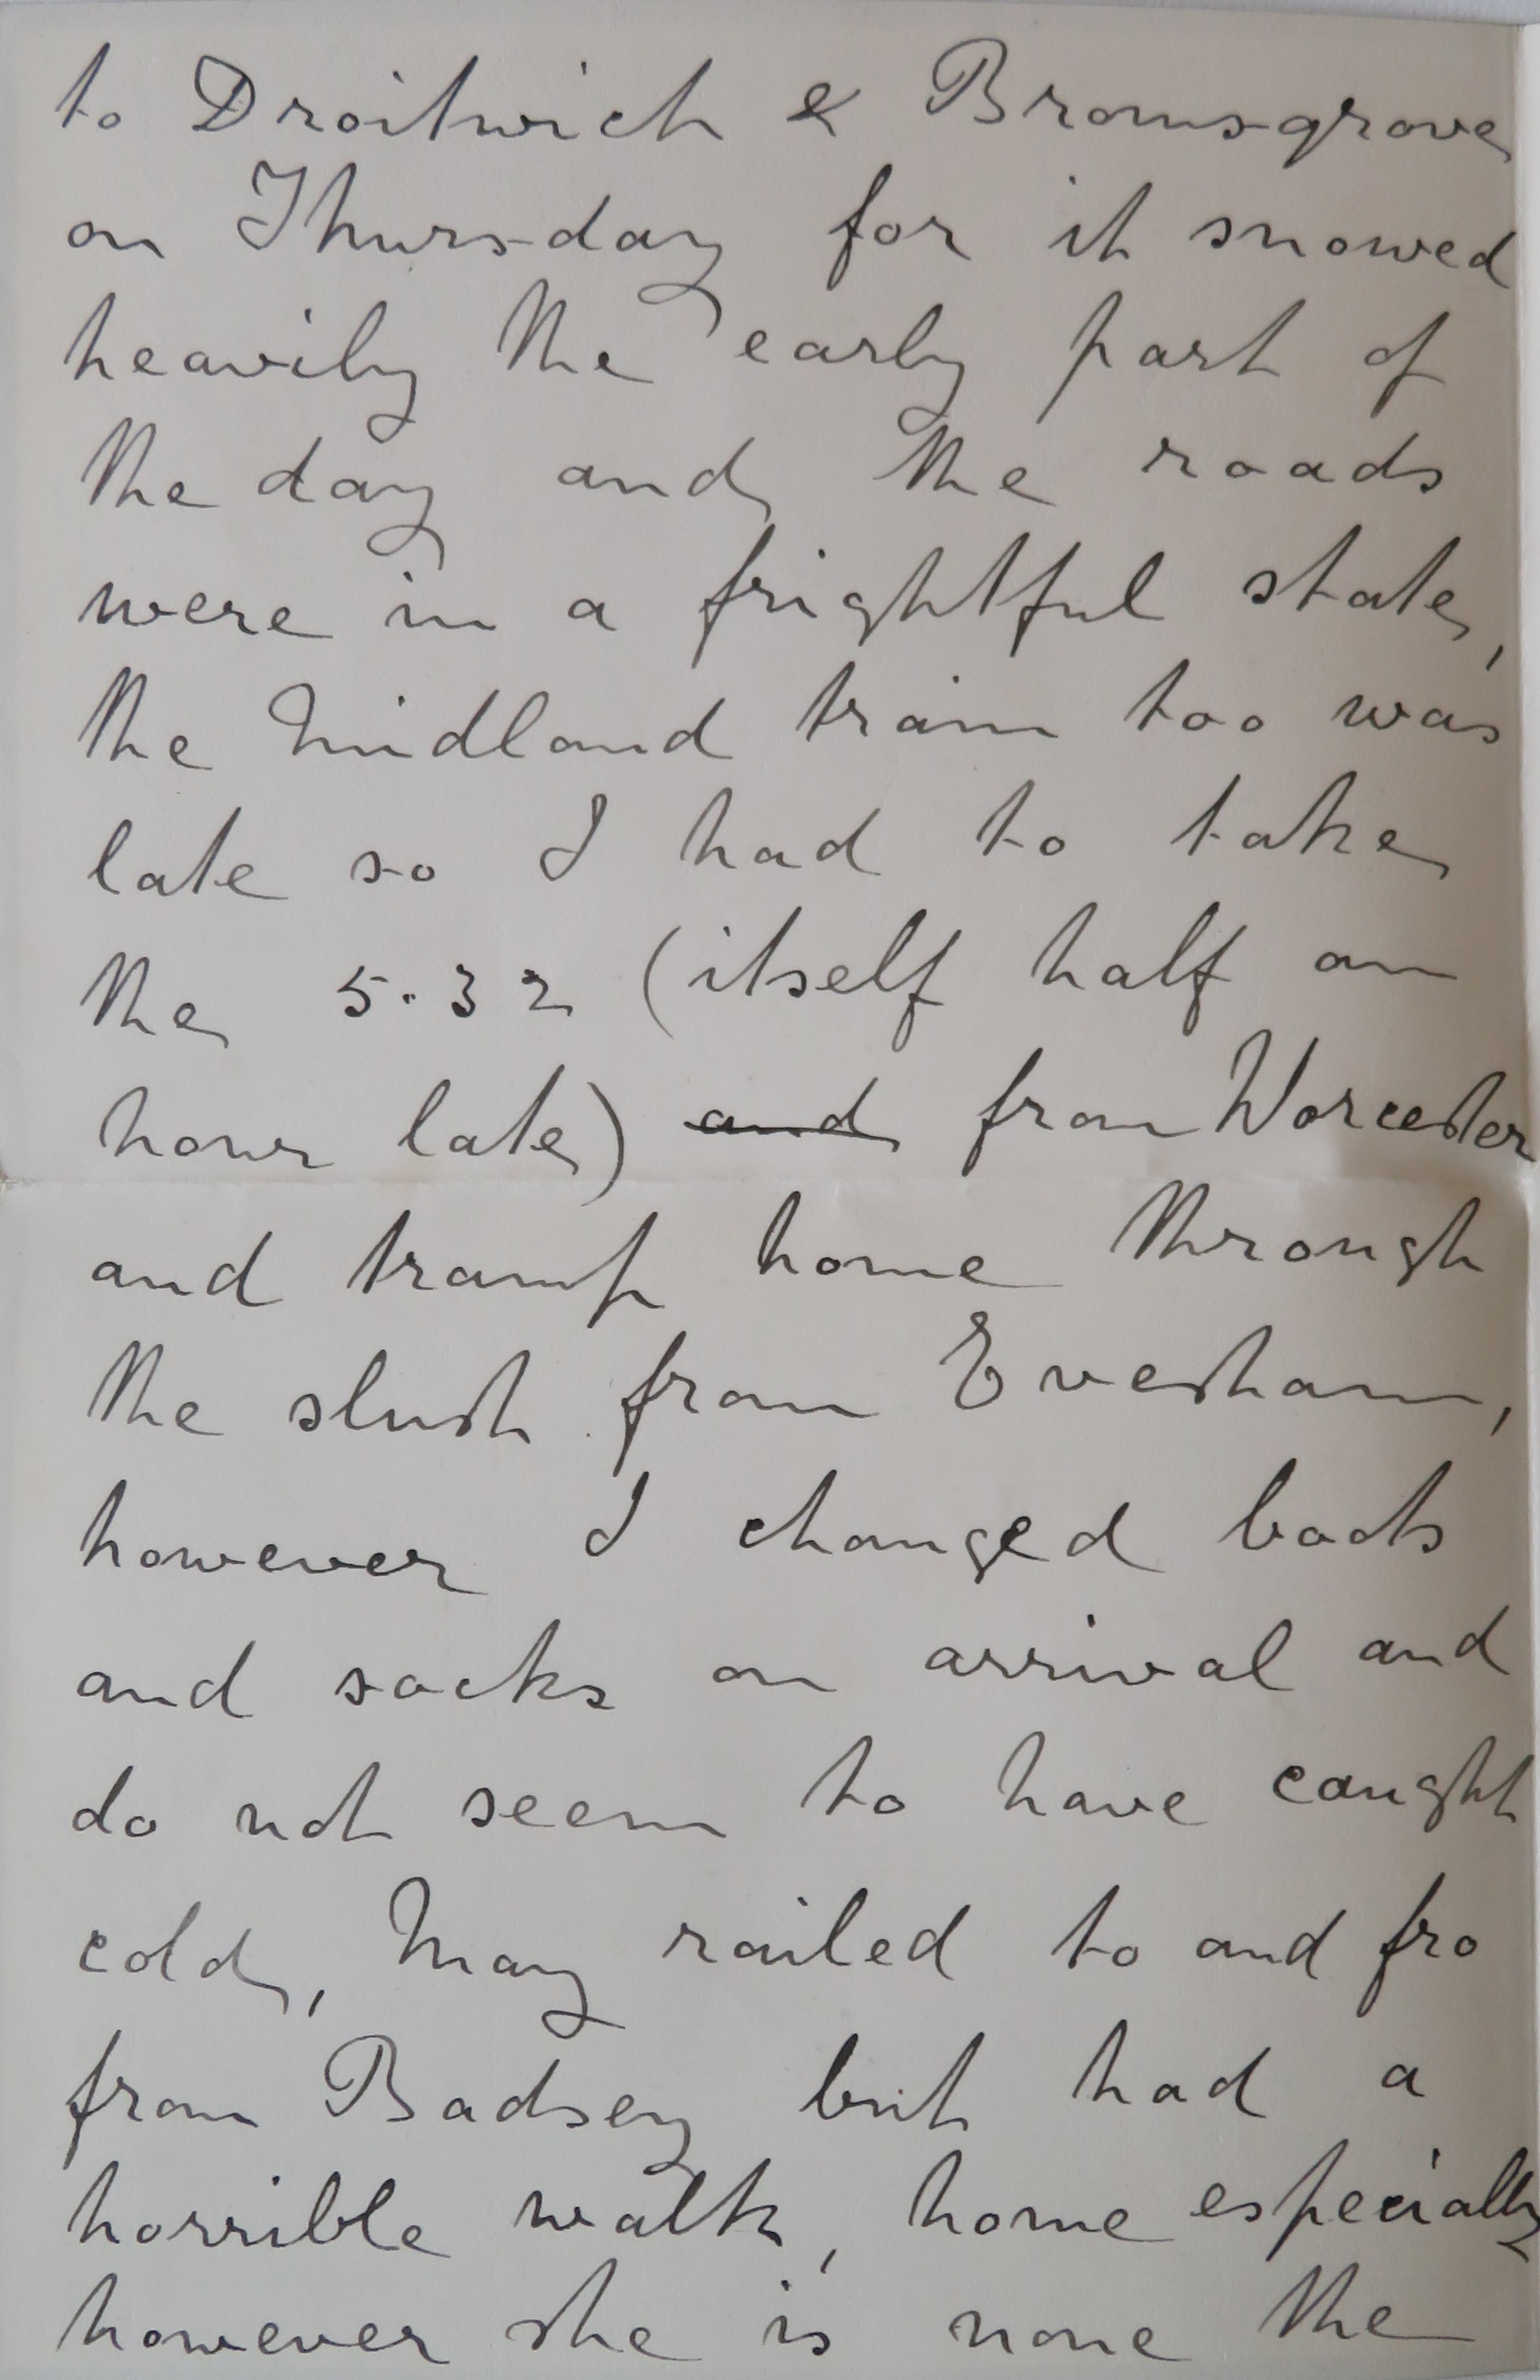 to Droitwich & Bromsgrove
on Thursday for it snowed
heavily the early part of
the day and the roads
were in a frightful state,
the Midland train too was
late so I had to take
the 5.32 (itself half an
hour late) and from Worcester
and tramp home through
the slush from Evesham,
however I changed boots
and socks on arrival and
do not seem to have caught
cold, May railed to and fro
from Badsey but had a
horrible walk, home especially
however she is none the